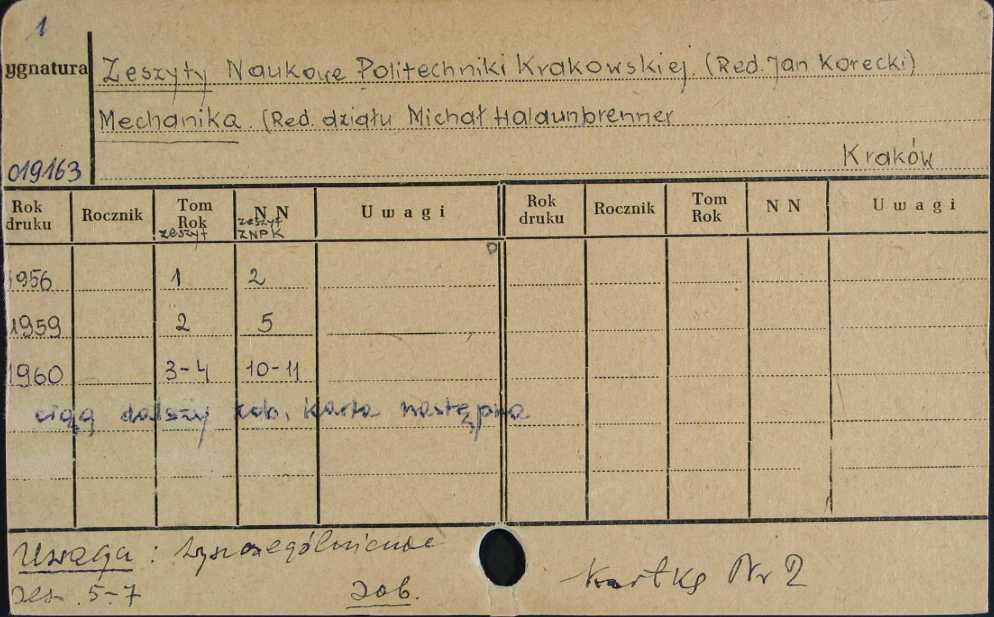 1
ygnatura Zeszyty Naukowe Politechniki Krakowskiej. (Red. Jan Korecki)
Mechanika. (Red. działu Michał Halaunbrenner
019163 Kraków
Rok druku Rocznik Tom Rok zeszyt N N zeszyt ZNPK Uwagi Rok druku Rocznik Tom Rok N N Uwagi
1956 1 2
1959 2 5
1960 3-4 10-11
ciąg dalszy zob. karta następna
Uwaga: wyszczególnienie
zesz. 5-7 zob. kartkę Nr 2